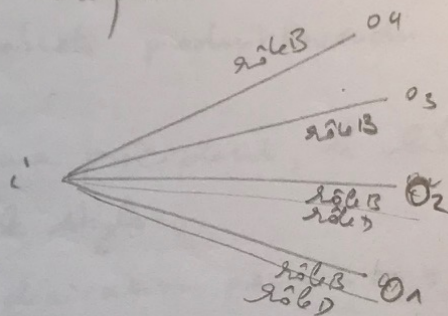 O4
rôle B
O3
rôle B
i
O2
rôle B
rôle D
rôle B
rôle D
O1